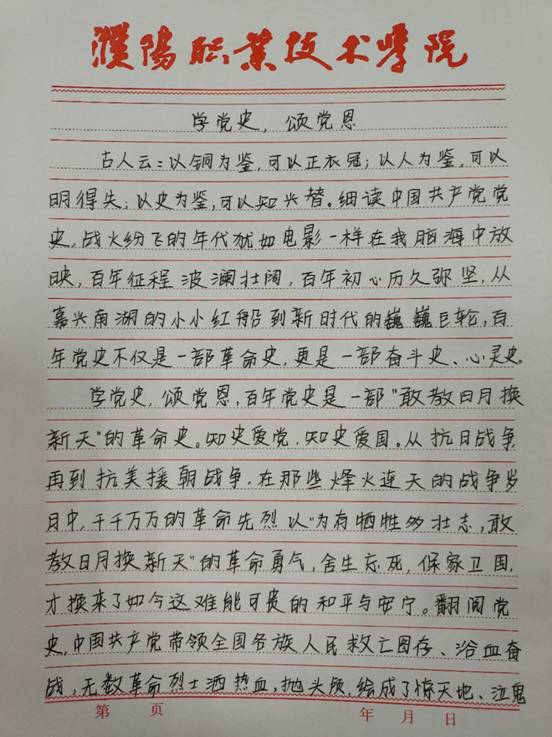 濮陽职业技术学院
学党史，颂党恩
古人云：以铜为鉴，可以正衣冠；以人为鉴，可以
明得失；以史为鉴，可以知兴替。细读中国共产党党
史，战火纷飞的年代犹如电影一样在我脑海中放
映，百年征程波澜壮阔，百年初心历久弥坚，从
嘉兴南湖的小小红船到新时代的巍巍巨轮，百
年党史不仅是一部革命史，更是一部奋斗史、心灵史。
学党史，颂党恩，百年党史是一部"敢教日月换
新天"的革命史。知史爱党，知史爱国。从抗日战争
再到抗美援朝战争，在那些烽火连天的战争岁
月中，千千万万的革命先烈以"为有牺牲多壮志，敢
教日月换新天"的革命勇气，舍生忘死，保家卫国，
才换来了如今这难能可贵的和平与安宁。翻阅党
史，中国共产党带领全国各族人民救亡图存、浴血奋
战，无数革命烈士洒热血，抛头颅，绘成了惊天地、泣鬼
第 页 年 月 日